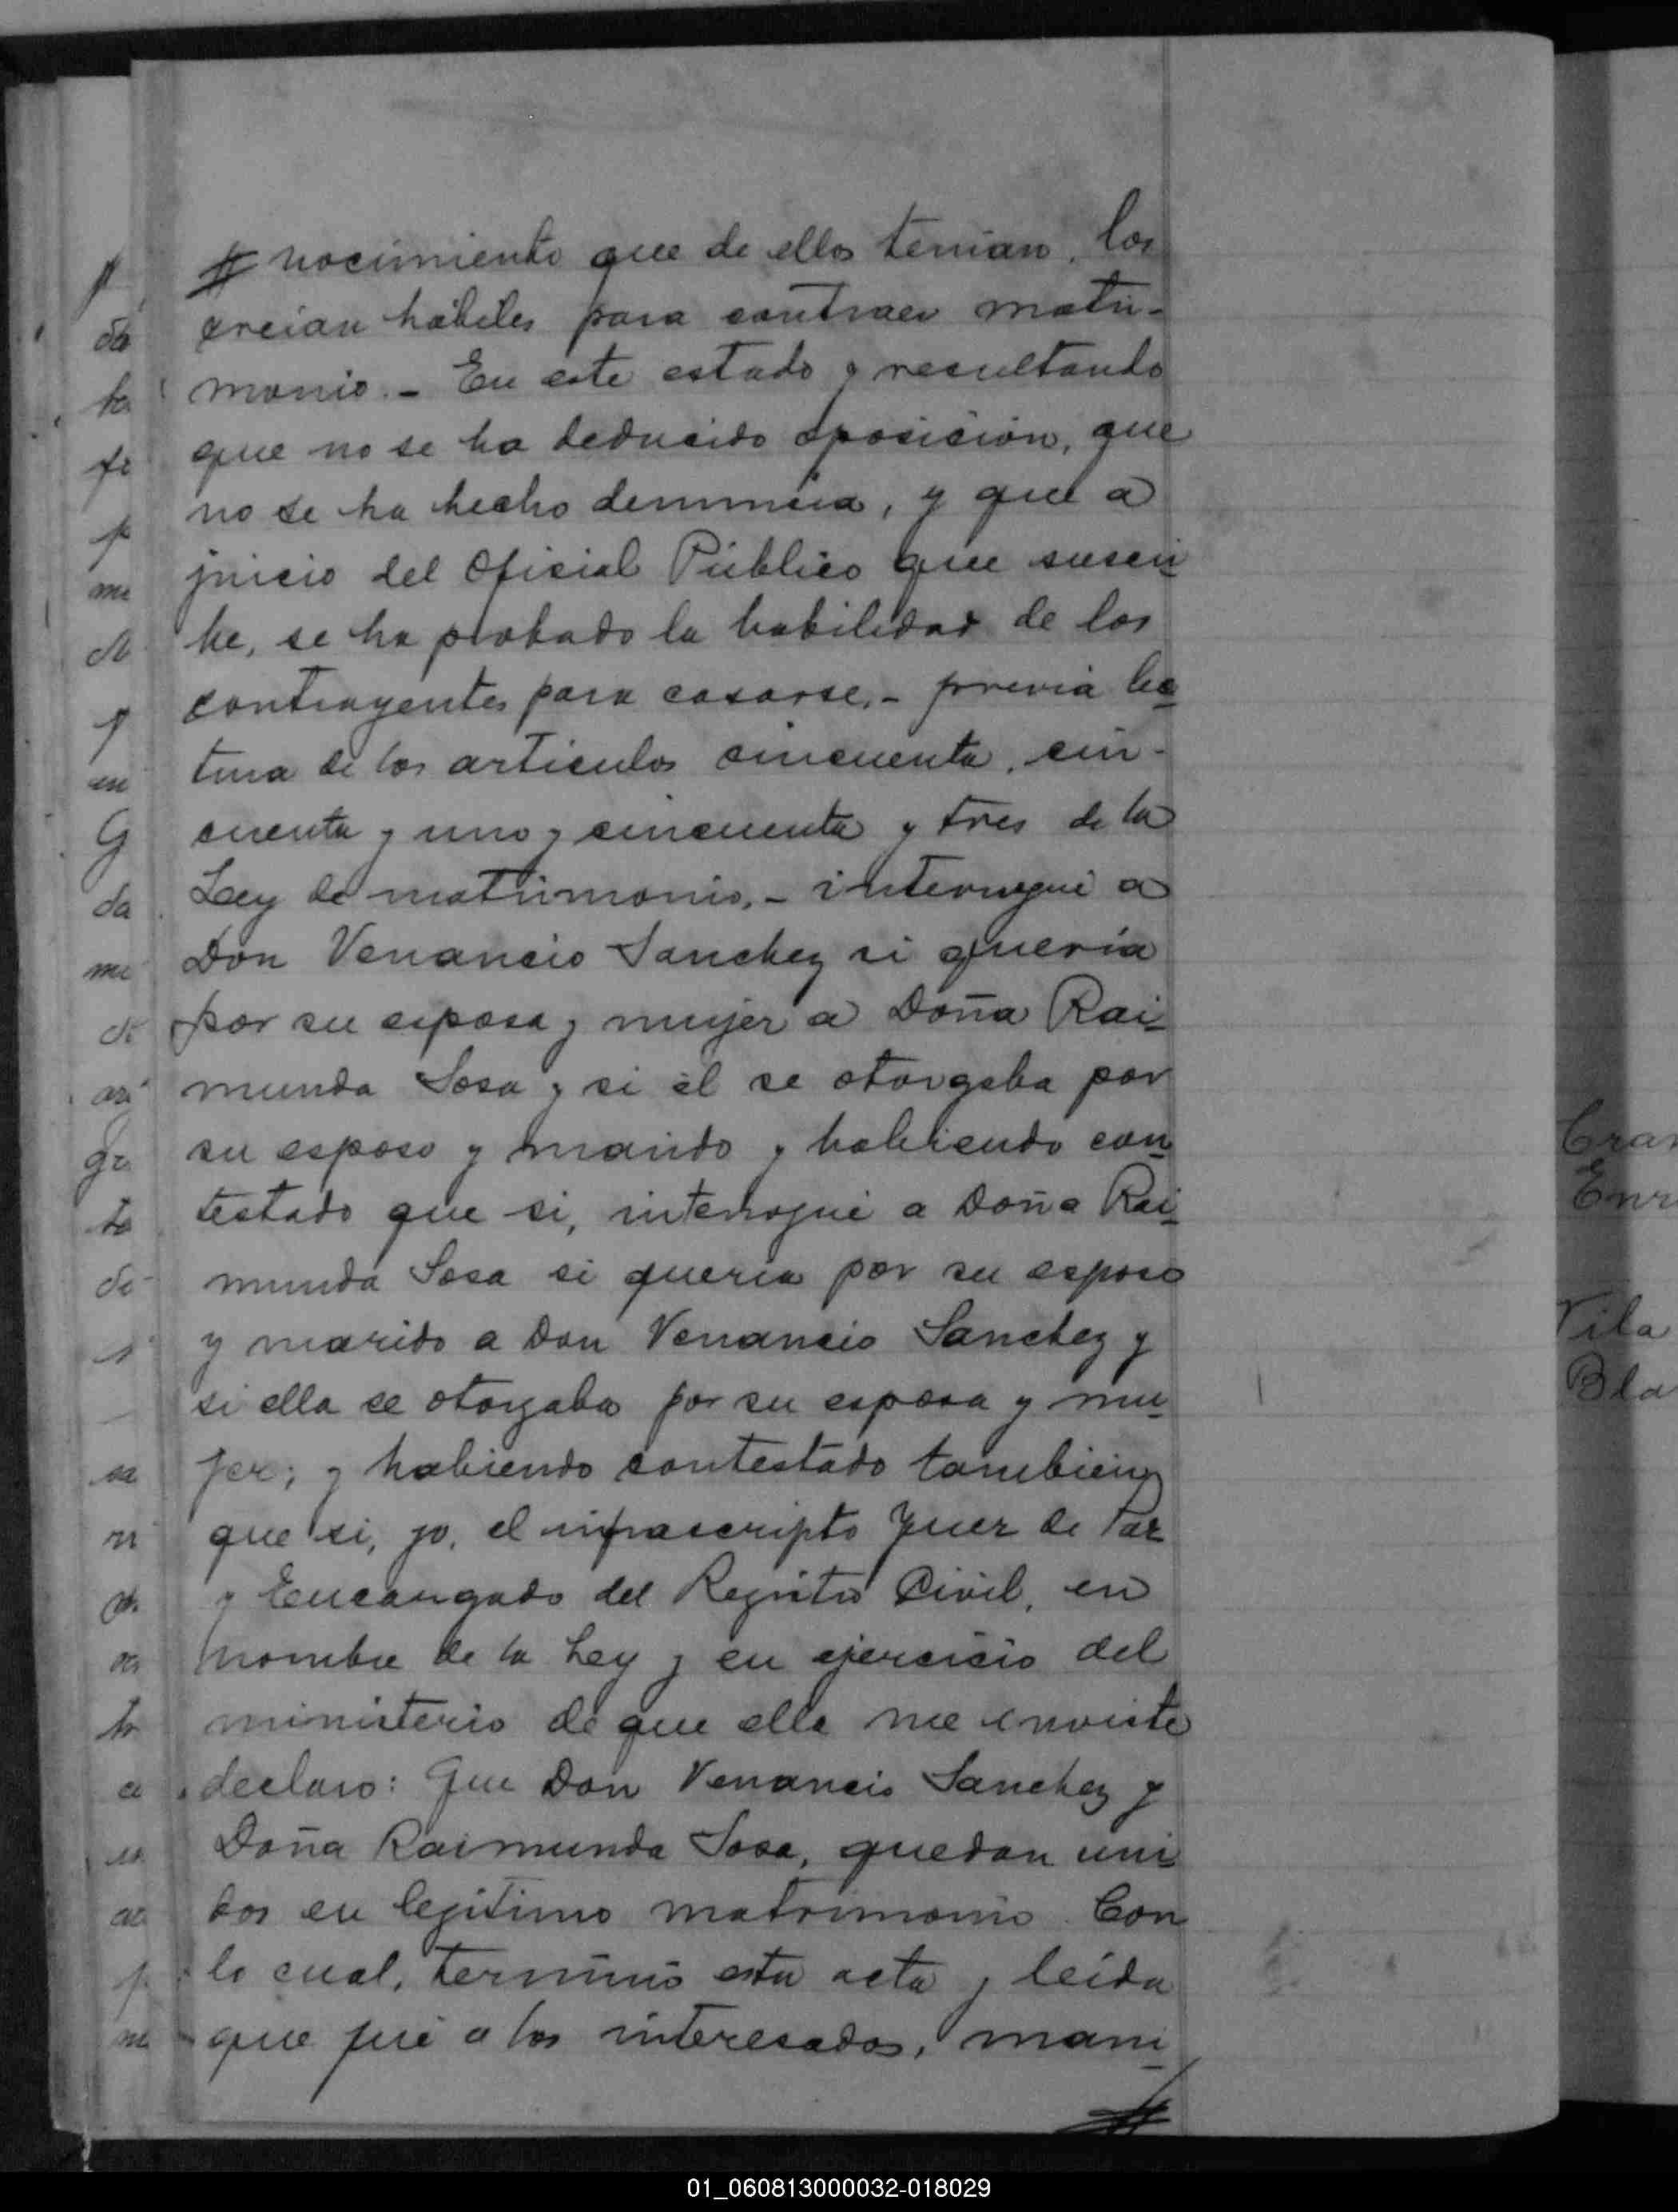 nocimiento que de ellos tenian, los
creian hábiles para contraer matri-
monio.- En este estado y resultando
que no se ha deducido oposición, que
no se ha hecho denuncia, y que a
juicio del Oficial Público que suscri
be, se ha probado la habilidad de los
contrayentes para casarse,- previa lec
tura de los articulos cincuenta, cin-
cuenta y uno y cincuenta y tres de la
Ley de matrimonio,- interrogué a
Don Venancio Sanchez si quería
por su esposa y mujer a Doña Rai-
munda Sosa y si él se otorgaba por
su esposo y marido y habiendo con
testado que si, interrogué a Doña Rai
munda Sosa si quería por su esposo
y marido a Don Venancio Sanchez y
si ella se otorgaba por su esposa y mu
jer; y habiendo contestado también
que si, yo, el infrascripto Juez de Paz
y Encargado del Registro Civil, en
nombre de la Ley y en ejercicio del
ministerio de que ella me inviste
declaro: Que Don Venancio Sanchez y
Doña Raimunda Sosa, quedan uni
dos en legitimo matrimonio. Con
lo cual, terminó esta acta y leída
que fué a los interesados, mani
Vila
01_060813000032-018029